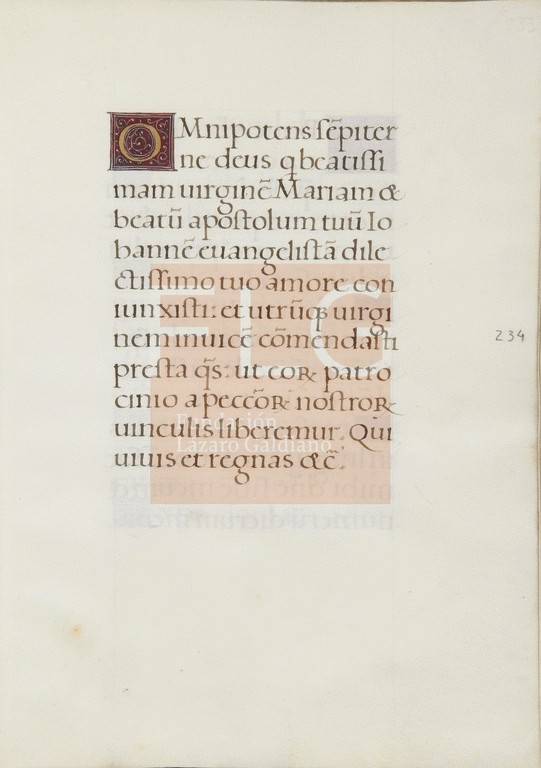 OMnipotens sẽpiter
ne deus q beatissi
mam uirginẽ Mariam &
beatũ apostolum tuũ Io
hannẽ euangelistã dile
ctissimo tuo amore con
iunxisti: et utrũqꝫ uirgi
nem inuicẽ cõmendasti
presta q̃s: ut coꝝ patro
cinio a peccõꝝ nostroꝝ
uinculis liberemur. Qui
uiuis et regnas &c̃.
234
FLG
Fundación
Lázaro Galdiano